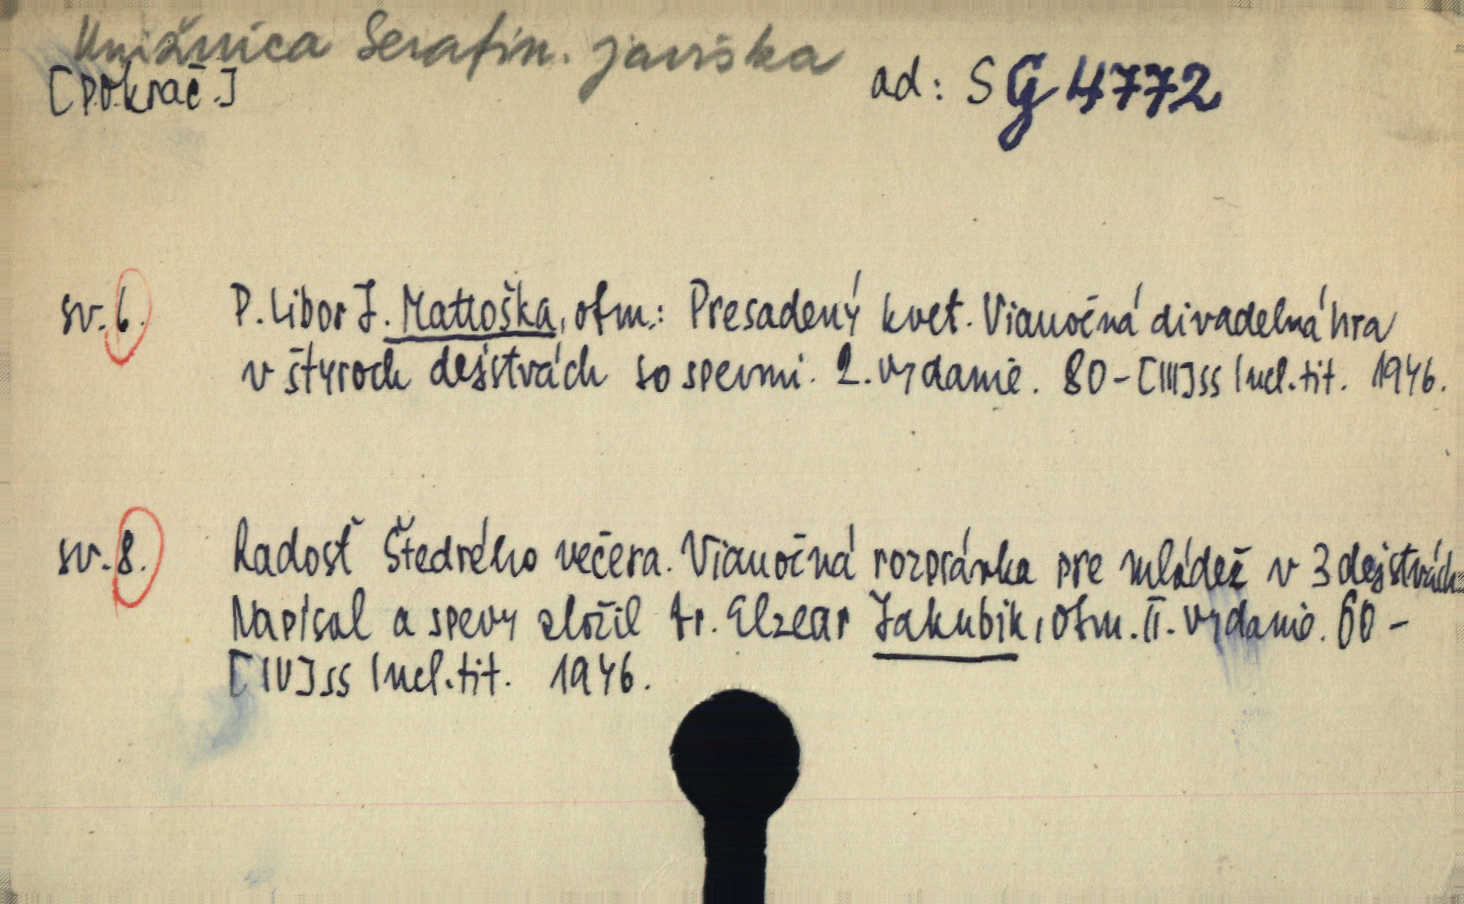 Knižnica Serafín. javiska
[Pokrač.] ad: SG 4772
sv. 6. P. Libor J. Mattoška, ofm.: Presadený kvet. Vianočná divadelná hra
v štyroch dejstvách so spevmi. 2. vydanie. 80-[III]ss Incl. tit. 1946.
sv. 8. Radosť Štedrého večera. Vianočná rozprávka pre mládež v 3 dejstvách.
Napísal a spevy zložil fr. Elzear Jakubik, ofm. II. vydanie. 60-
[IV]ss Incl. tit. 1946.